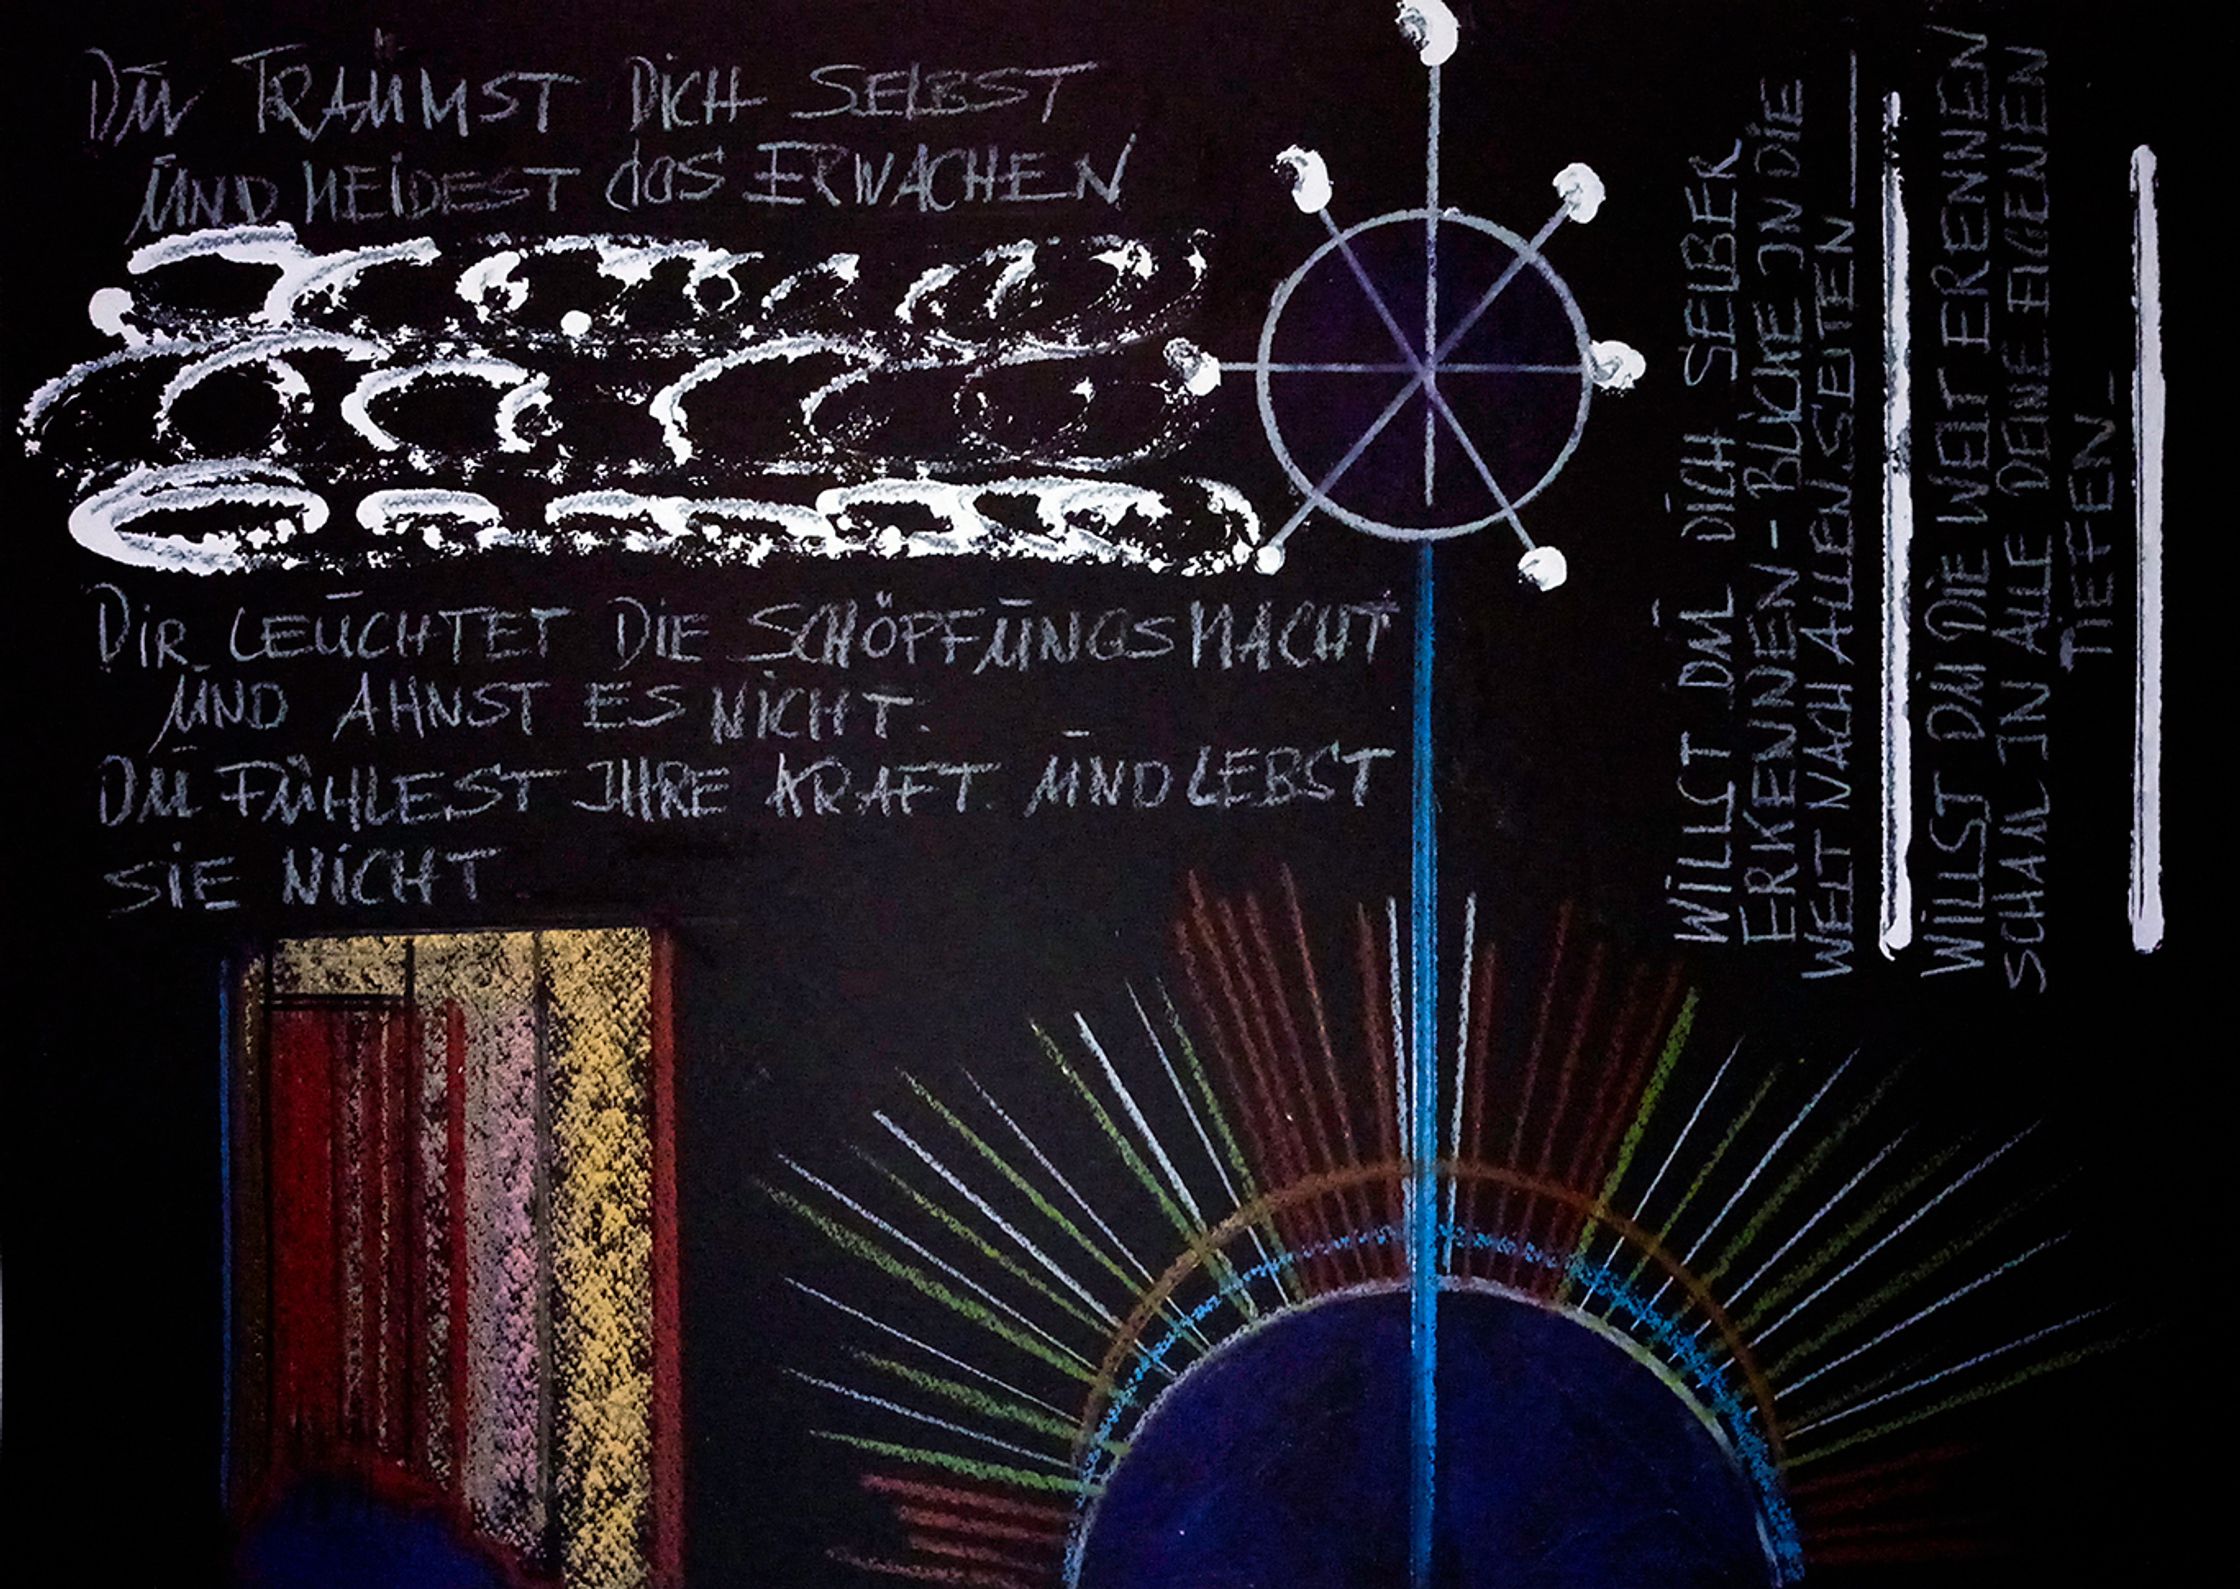 DU TRAUMST DICH SELBST
UND MEIDEST das ERWACHEN
DIR LEUCHTET DIE SCHÖPFUNGSMACHT
UND AHNST ES NICHT.
DU FÜHLEST IHRE KRAFT UND LEBST
SIE NICHT
WILLST DU DICH SELBER
ERKENNEN - BLICKE IN DIE
WELT NACH ALLEN SEITEN
WILLST DU DIE WELT ERKENNEN
SCHAU IN ALLE DEINE EIGENEN
TIEFEN